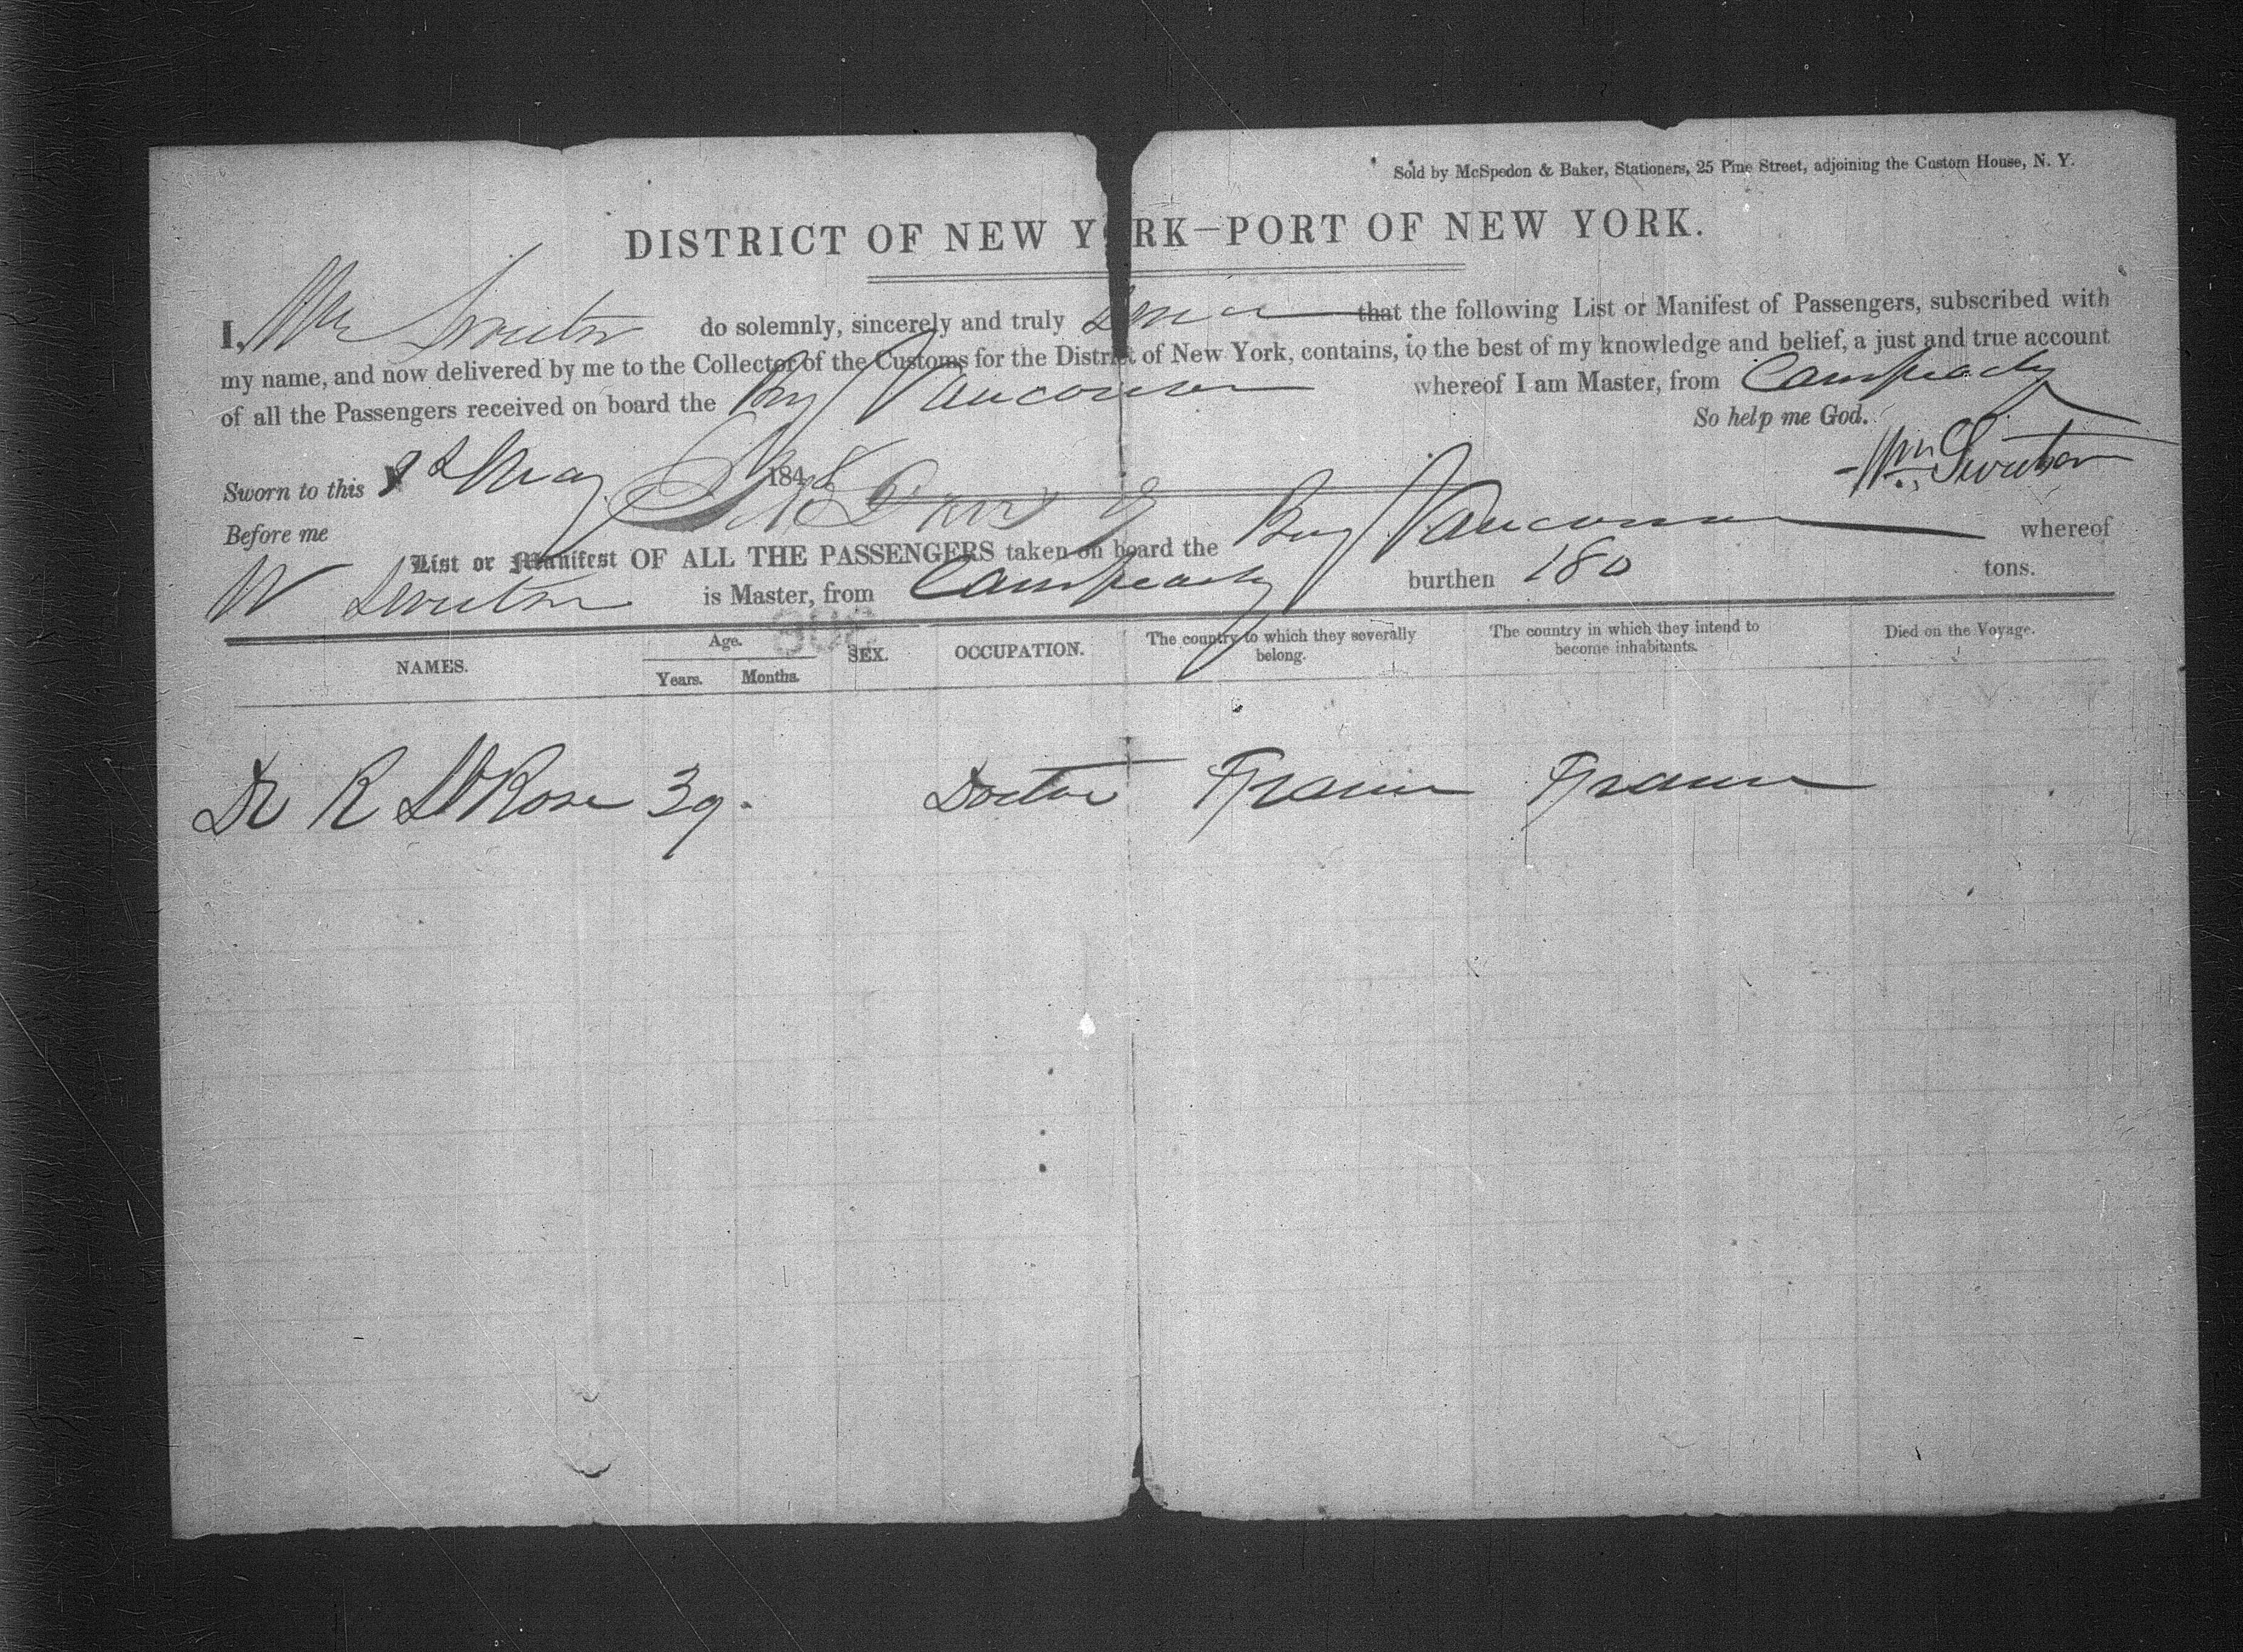 Sold by McSpedon & Baker, Stationers, 25 Pine Street, adjoining the Custom House, N. Y.
DISTRICT OF NEW YORK—PORT OF NEW YORK.
I, Wm do solemnly, sincerely and truly that the following List or Manifest of Passengers, subscribed with
my name, and now delivered by me to the Collector of the Customs for the District of New York, contains, to the best of my knowledge and belief, a just and true account
of all the Passengers received on board the Brig Vancouver whereof I am Master, from Campeachy
So help me God.
Sworn to this May 1848 Wm
Before me
List or Manifest OF ALL THE PASSENGERS taken on board the Brig Vancouver whereof
W is Master, from Campeachy burthen 180 tons.
NAMES. Age. Years. Months. SEX. OCCUPATION. The country to which they severally belong. The country in which they intend to become inhabitants. Died on the Voyage.
Dr R Rose 39. Doctor France France